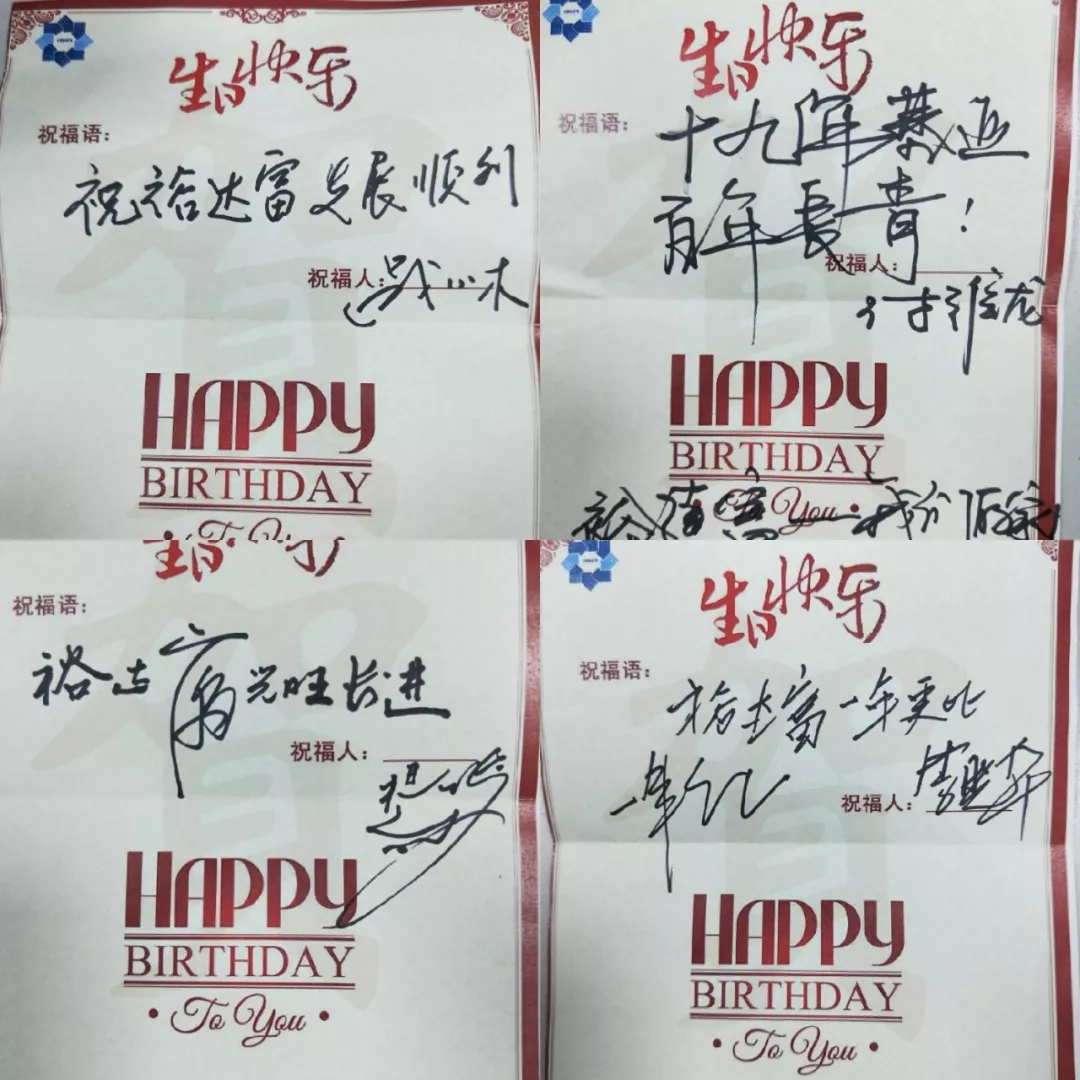 生日快乐
祝福语：
祝裕达富发展顺利
祝福人：
HAPPY
BIRTHDAY
To You
生日快乐
祝福语：
十九年
百年長青！
祝福人：
付維龙
HAPPY
BIRTHDAY
To You
裕
生日快乐
祝福语：
裕达富兴旺长进
祝福人：
HAPPY
BIRTHDAY
• To You •
生日快乐
祝福语：
裕达富一年更比
一年
祝福人：
HAPPY
BIRTHDAY
• To You •